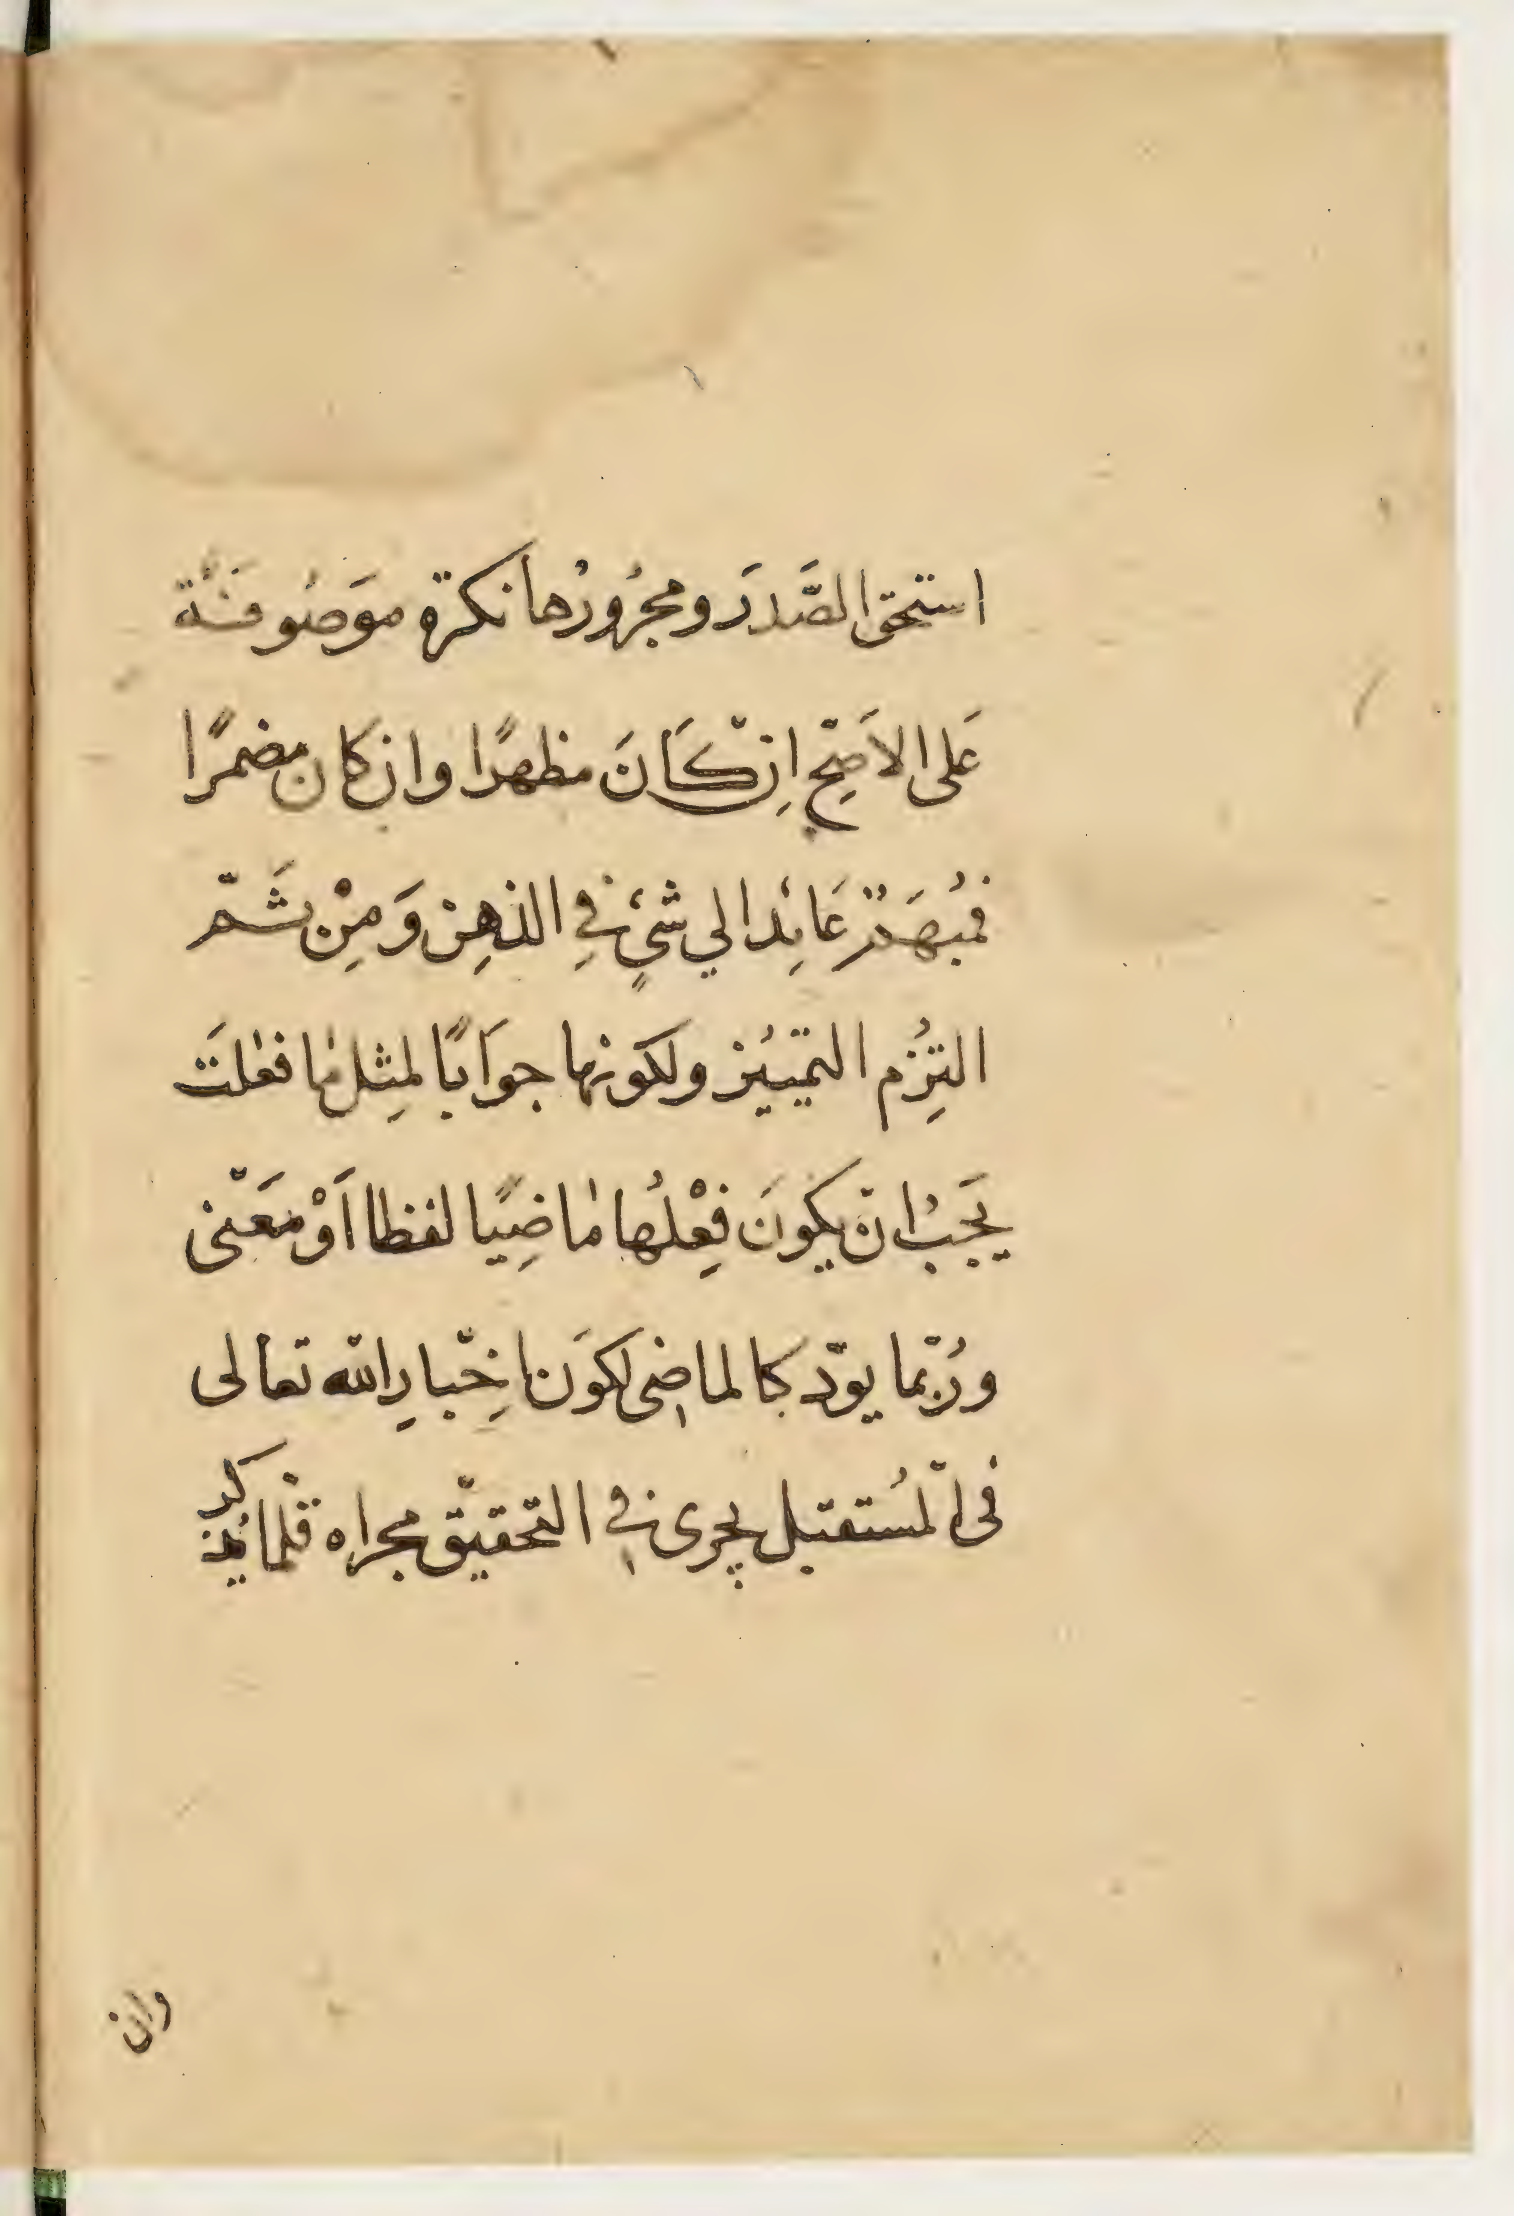 استحق الصَّدرَ ومجرُورُها نكرة موَصُوفَةٌ
عَلى الاَصَحِّ اِنْ كَانَ مظهرًا وان كان مضمرًا
فمُبهَمٌ عَائِدا الي شئٍ في الذهِن وَمِنْ ثَمّ
التِزُم التمييُز ولكونها جوَابًا لمِثل مٰا فعلتَ
يَجبُ انّ يكونَ فِعْلُها مٰاضِيًا لفظا اَوْ مَعْنى
ورُبّما يودّ كالماضى لكوَن اخِبّارِ الله تعالى
فى الّمسُتقبل يجرى في التحقيق مجراه فلما يُذكر
وان